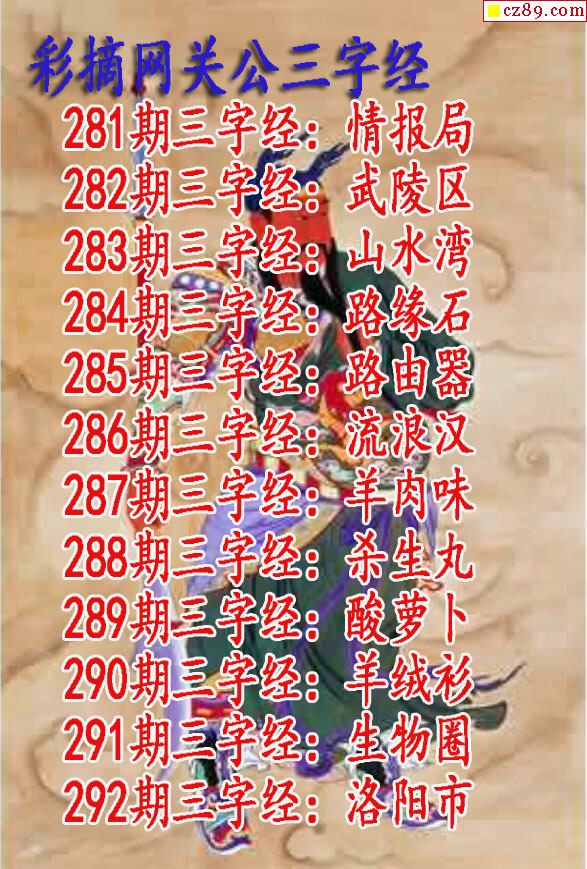 cz89.com
彩摘网关公三字经
281期三字经：情报局
282期三字经：武陵区
283期三字经：山水湾
284期三字经：路缘石
285期三字经：路由器
286期三字经：流浪汉
287期三字经：羊肉味
288期三字经：杀生丸
289期三字经：酸萝卜
290期三字经：羊绒衫
291期三字经：生物圈
292期三字经：洛阳市